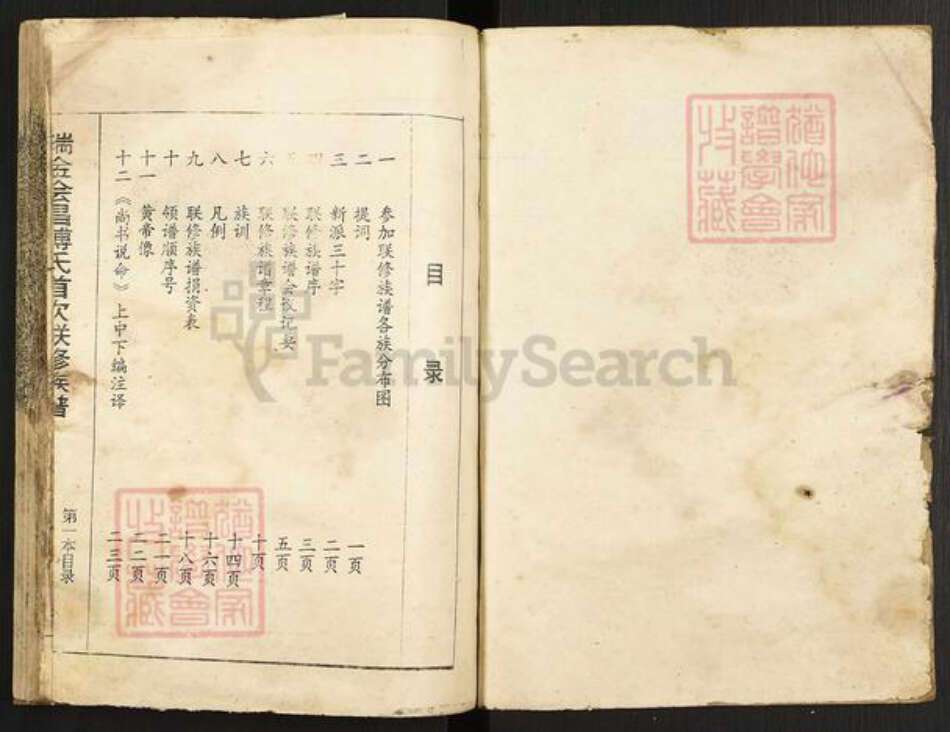 目录
一 参加联修族谱各族分布图 一页
二 提词 二页
三 新派三十字 三页
四 联修族谱序 五页
五 联修族谱会议记要 十页
六 联修族谱章程 十四页
七 族训 十六页
八 凡例 十八页
九 联修族谱捐资表 二一页
十 领谱顺序号 二二页
十一 黄帝像 二三页
十二 《尚书说命》上中下编注译
瑞金会昌傅氏首次联修族谱
第一本目录
FamilySearch
谱学会
收藏